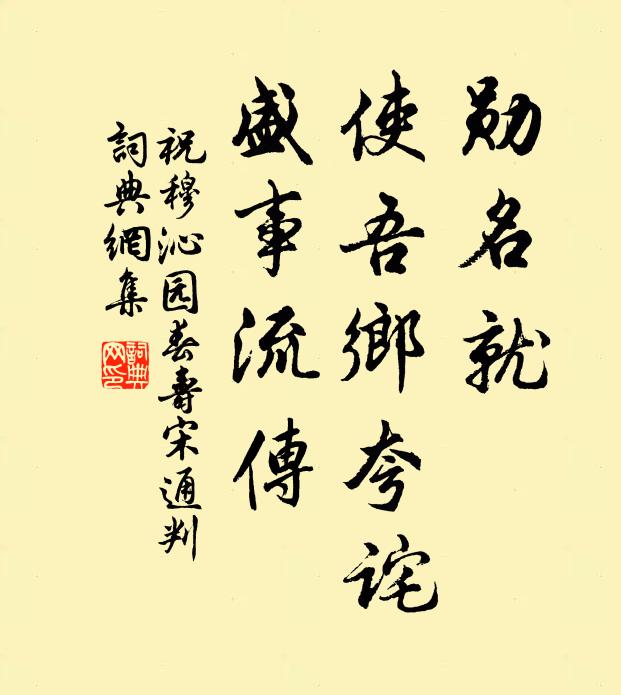 勋名就
使吾鄉夸詫
盛事流傳
祝穆沁园春壽宋通判
詞典網集
詞典网印